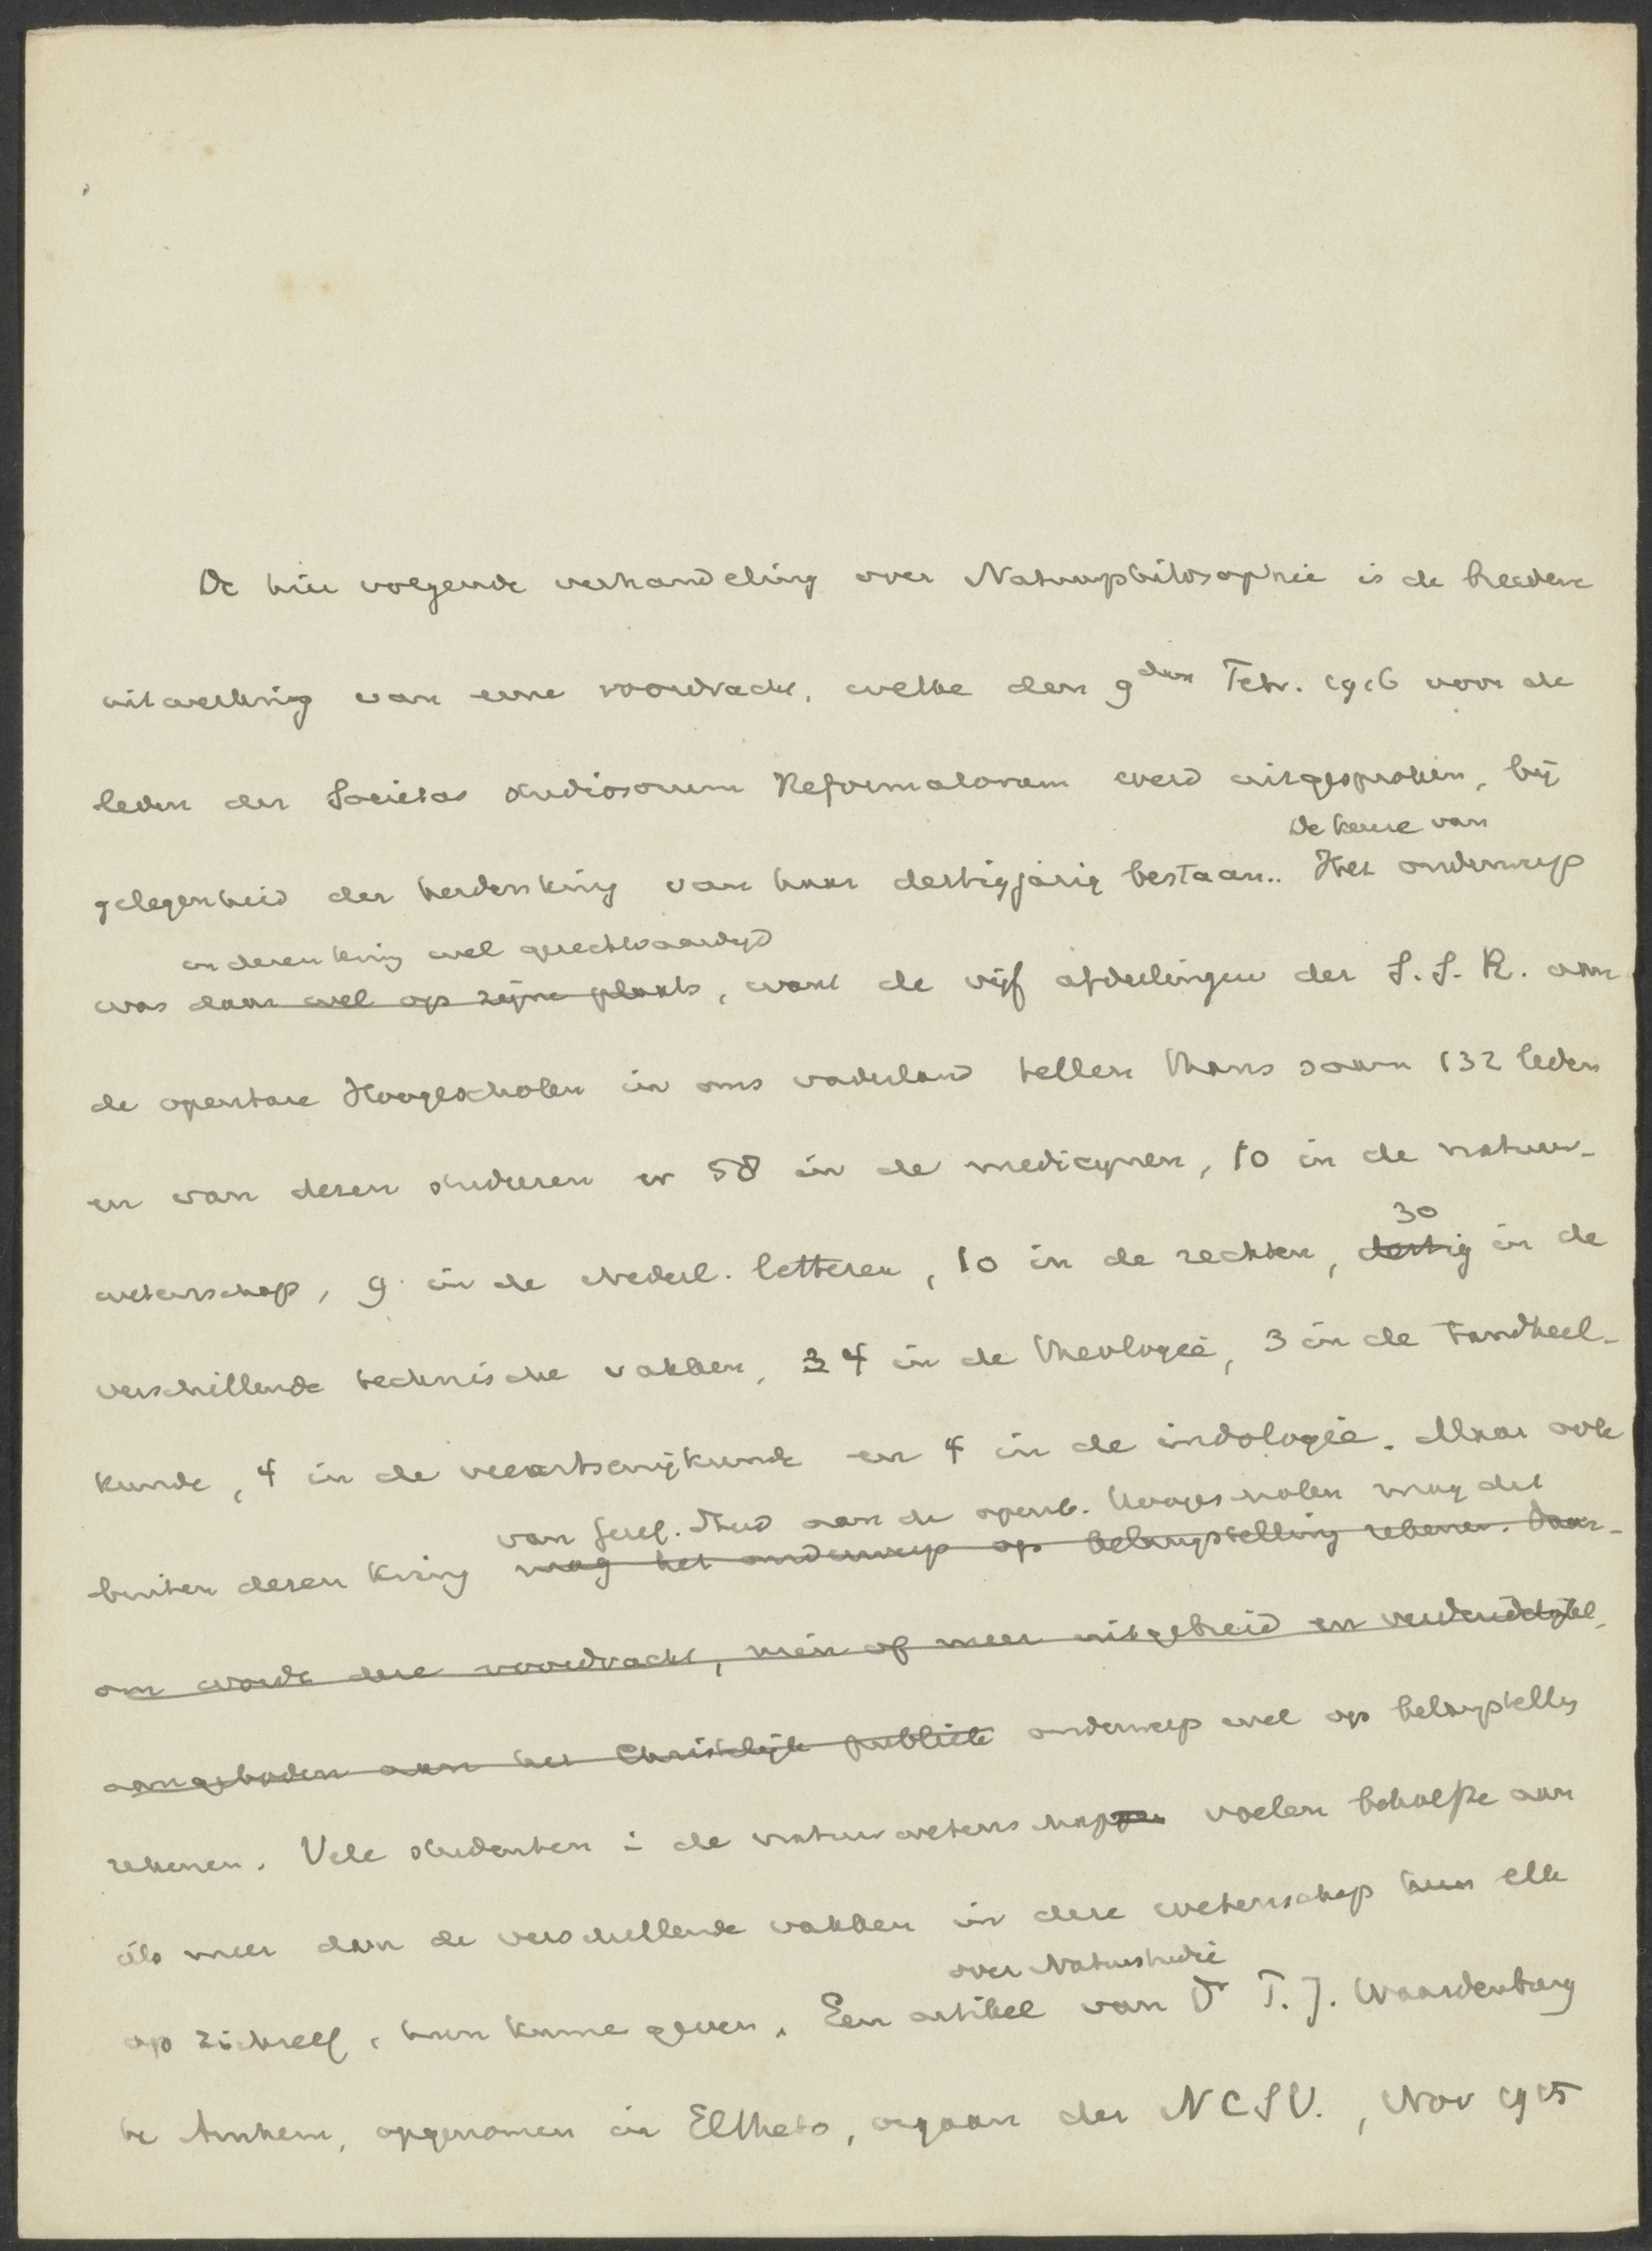 De hier volgende verhandeling over Natuurphilosophie is de breedere
uitwerking van eene voordracht, welke den 9den Febr. 1916 voor de
leden der Societas Studiosorum Reformatorum werd uitgesproken, bij
De keuze van
gelegenheid der herdenking van haar dertigjarig bestaan.. Het onderwerp
in dezen kring wel gerechtvaardigd
was daar wel op zijne plaats, want de vijf afdeelingen der S.S.R. aan
de openbare Hoogescholen in ons vaderland tellen thans saam 132 leden
en van dezen studeeren er 58 in de medicynen, 10 in de natuur-
30
wetenschap, 9 in de Nederl. letteren, 10 in de rechten, dertig in de
verschillende technische vakken, 3 4 in de theologie, 3 in de Tandheel-
kunde, 4 in de veeartsenijkunde en 4 in de indologie. Maar ook
van Geref. Stud aan de openb. Hoogescholen mag dit
buiten dezen kring mag het onderwerp op belangstelling rekenen. Daar-
om worde deze voordracht, min of meer uitgebreid en verduidelijkt,
aangeboden aan het Christelijk publiek onderwerp wel op belangstelling
rekenen. Vele studenten i de natuurwetenschappen voelen behoefte aan
iets meer dan de verschillende vakken in deze wetenschap hun elk
over Natuurstudie
op zichzelf, hun kunne geven. Een artikel van Dr P. J. Waardenburg
te Arnhem, opgenomen in Eltheto, orgaan der NCSV., Nov 1915